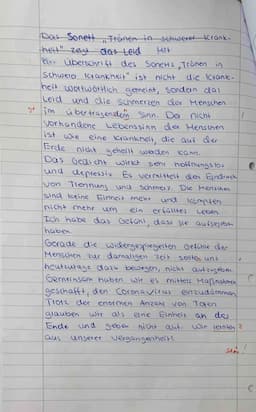 Das Sonett „Tränen in schwerer Krank-
heit" zeigt das Leid
Überschrift des Sonetts „Tränen in
schwerer Krankheit" ist nicht die Krank-
heit wortwörtlich gemeint, sondern das
Leid und die Schmerzen der Menschen
im übertragenden Sinn. Der nicht
vorhandene Lebenssinn der Menschen
ist wie eine Krankheit, die auf der
Erde nicht geheilt werden kann.
Das Gedicht wirkt sehr hoffnungslos
und depressiv. Es vermittelt den Eindruck
von Trennung und Schmerz. Die Menschen
sind keine Einheit mehr und kämpfen
nicht mehr um ein erfülltes Leben.
Ich habe das Gefühl, dass sie aufgegeben
haben.
Gerade die widergespiegelten Gefühle der
Menschen zur damaligen Zeit sollten uns
heutzutage dazu bewegen, nicht aufzugeben.
Gemeinsam haben wir es mittels Maßnahmen
geschafft, den Coronavirus einzudämmen.
Trotz der enormen Anzahl von Toten
glauben wir als eine Einheit an das
Ende und geben nicht auf. Wir lernten
aus unserer Vergangenheit!